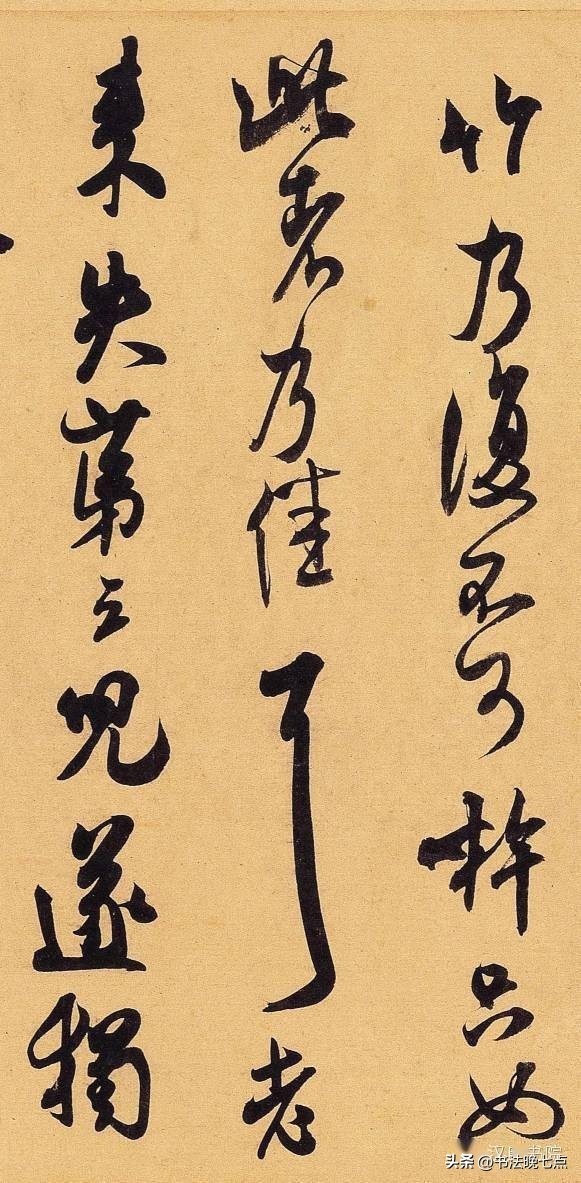 竹乃復不可杵只如
此者乃佳耳老
来失第三兒遂獨
头条 @书法晚七点